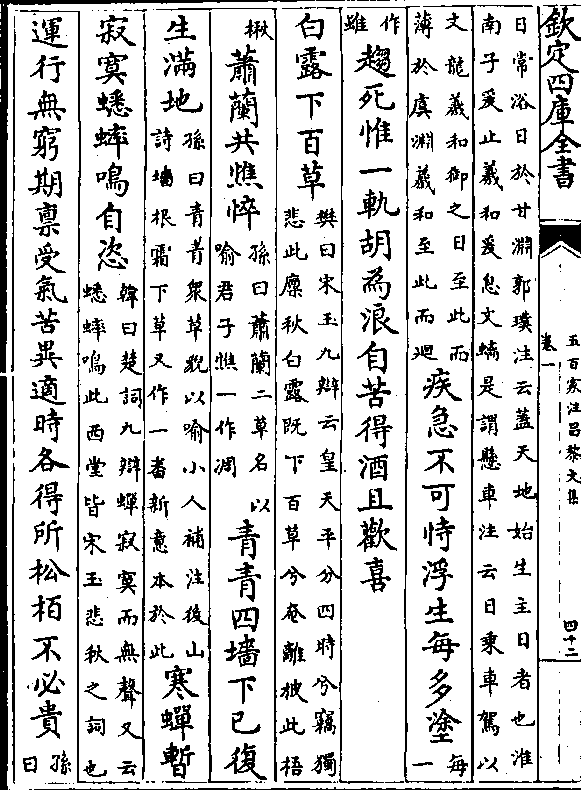 欽定四庫全書
五百家注昌黎文集
卷一
四十二
日常浴日於甘淵郭璞注云蓋天地始生主日者也淮
南子爰止羲和爰息六螭是謂懸車注云日乘車駕以
六龍羲和御之日至此而
薄於虞淵羲和至此而迴
疾急不可恃浮生每多塗
每一
作雖
趨死惟一軌胡為浪自苦得酒且歡喜
白露下百草
樊曰宋玉九辯云皇天平分四時兮竊獨
悲此廩秋白露既下百草兮奄離披此梧
楸
蕭蘭共憔悴
孫曰蕭蘭二草名以
喻君子憔一作凋
青青四墻下已復
生滿地
孫曰青青衆草貌以喻小人補注後山
詩墻根霜下草又作一番新意本於此
寒蟬暫
寂寞蟋蟀鳴自恣
韓曰楚詞九辯蟬寂寞而無聲又云
蟋蟀鳴此西堂皆宋玉悲秋之詞也
運行無窮期稟受氣苦異適時各得所松柏不必貴
孫曰